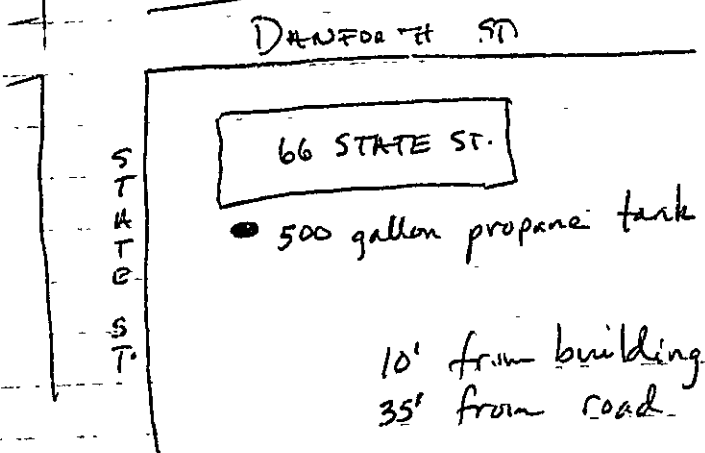 DANFORTH ST
66 STATE ST.
STATE ST.
500 gallon propane tank
10' from building
35' from road